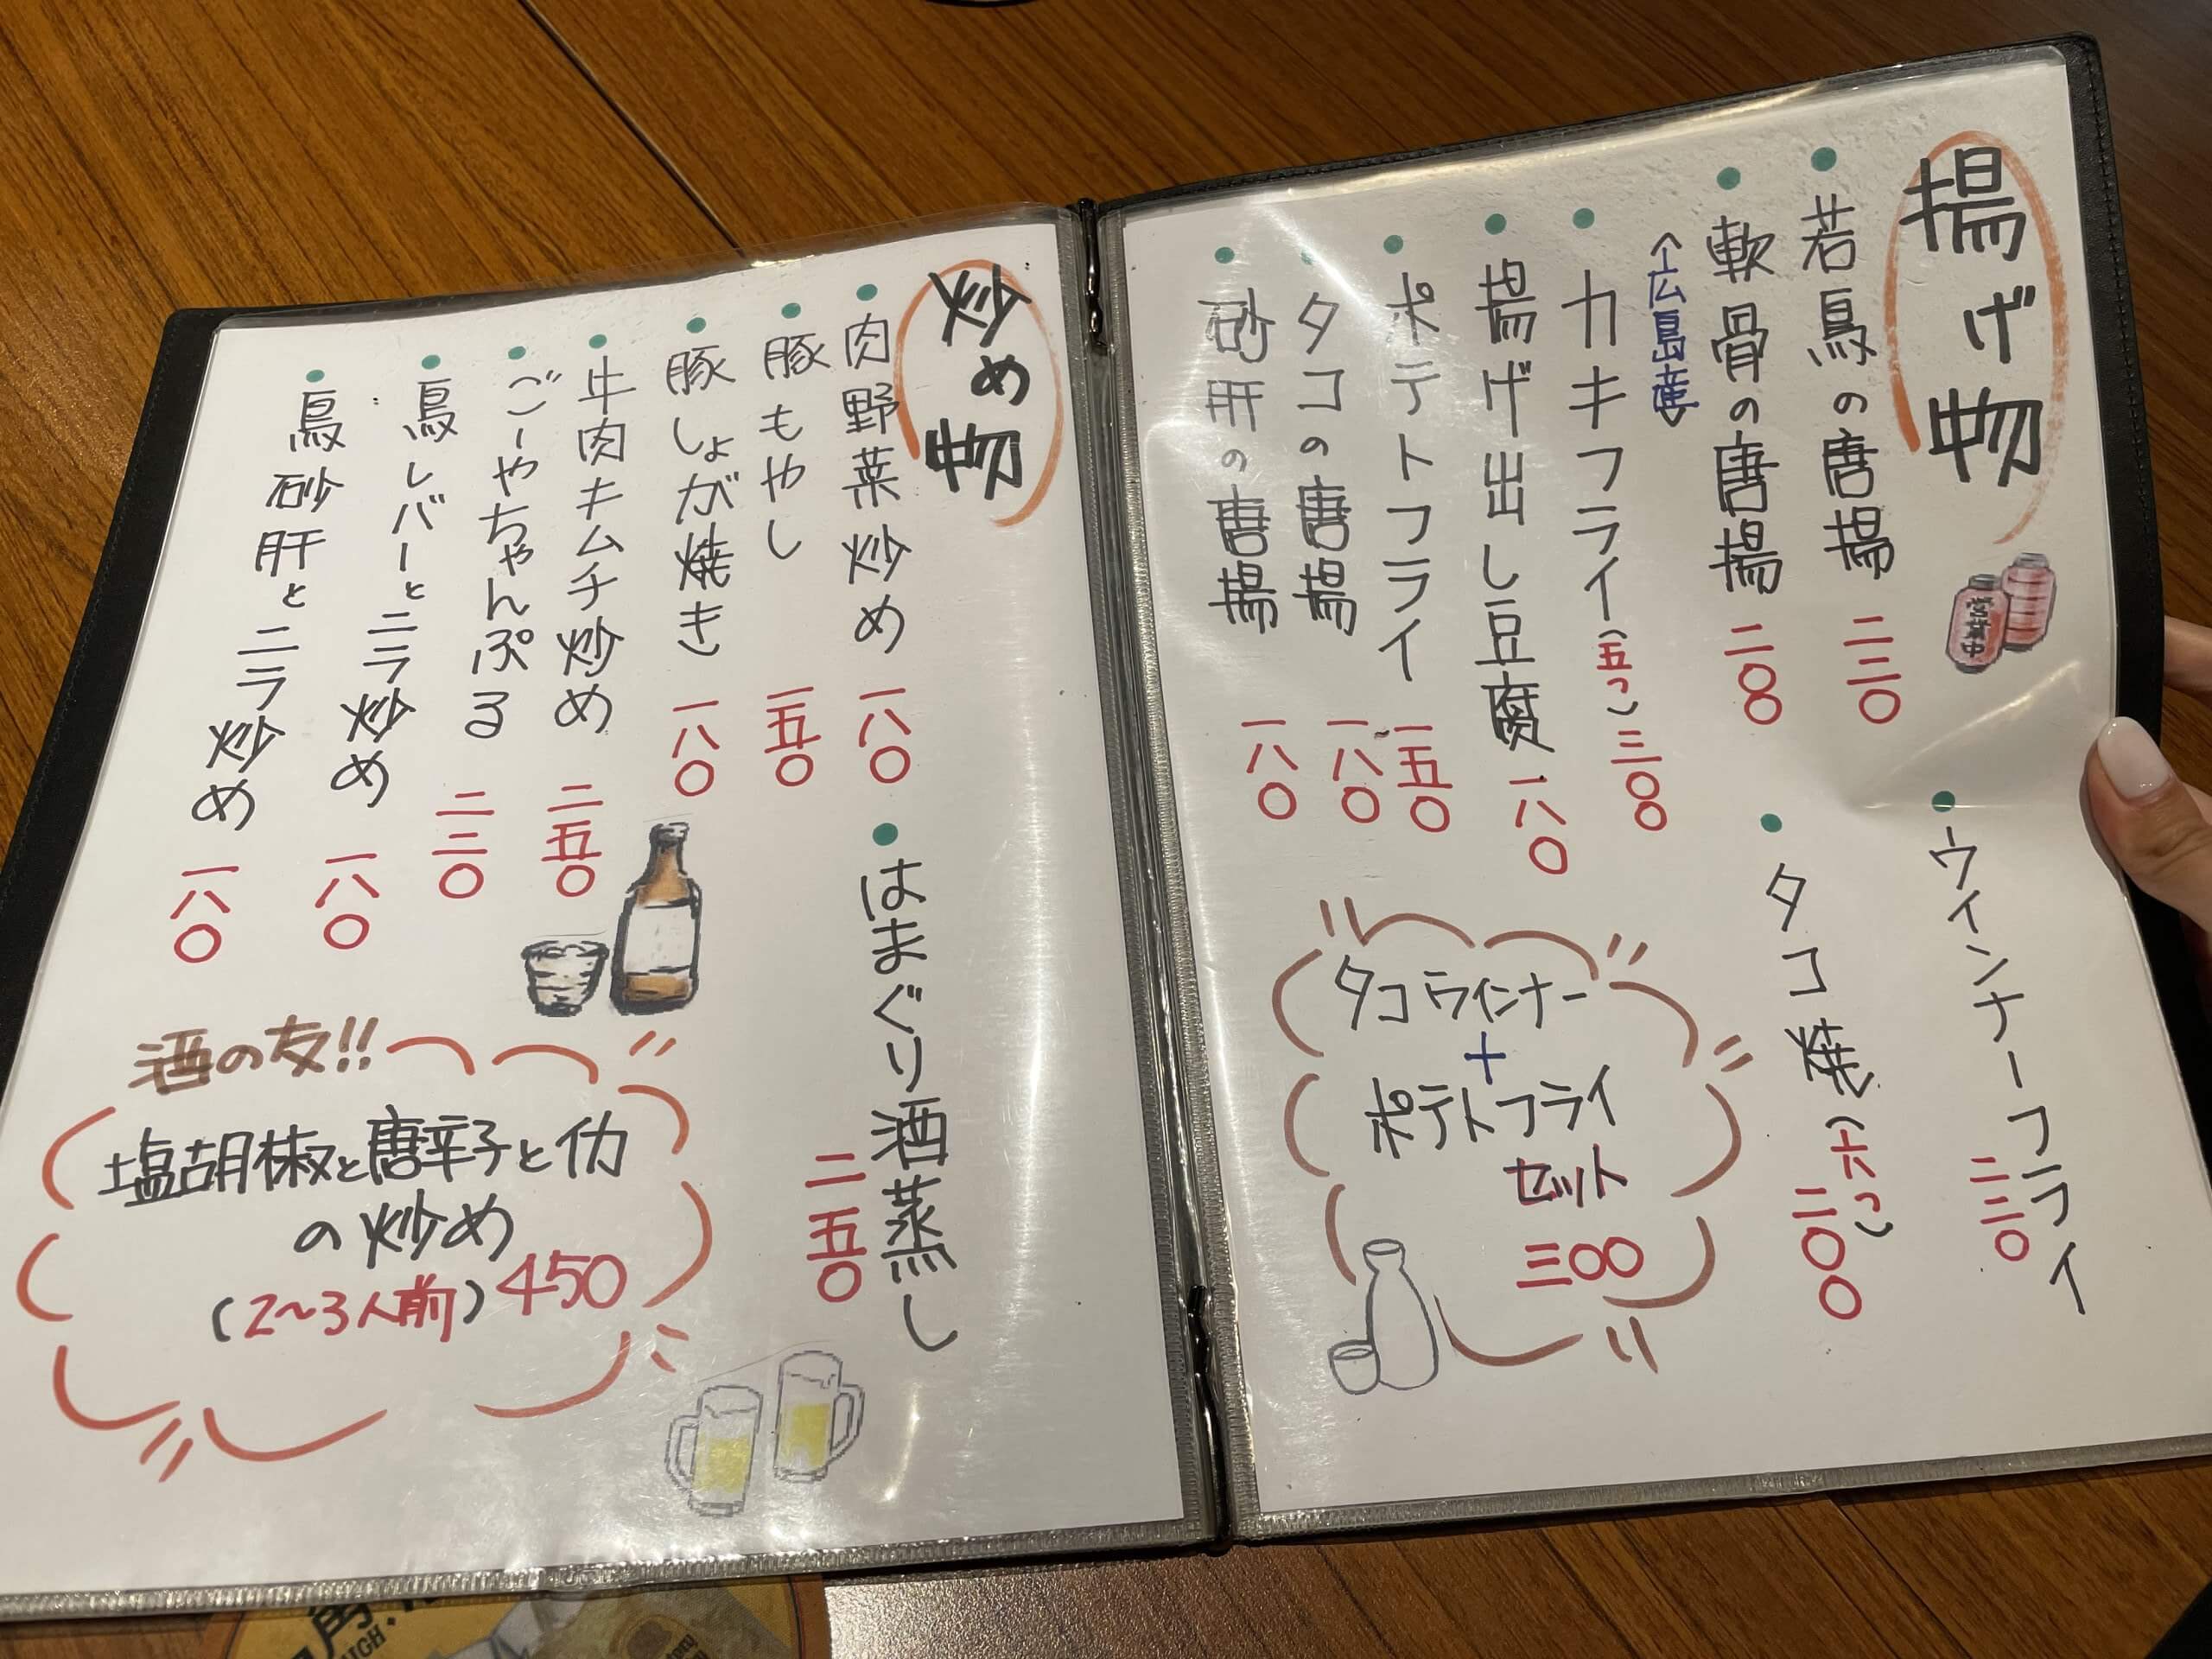 揚げ物
営業中
若鳥の唐揚 二二〇
軟骨の唐揚 二〇〇
カキフライ(五つ) 三〇〇
↑広島産↓
揚げ出し豆腐 一八〇
ポテトフライ 一五〇
タコの唐揚 一八〇
砂肝の唐揚 一八〇
ウインナーフライ 二二〇
タコ焼(六つ) 二〇〇
タコウインナー
+
ポテトフライ
セット
三〇〇
炒め物
肉野菜炒め 一八〇
豚もやし 一五〇
豚しょが焼き 一八〇
牛肉キムチ炒め 二五〇
ごーやちゃんぷる 二二〇
鳥レバーとニラ炒め 一八〇
鳥砂肝とニラ炒め 一八〇
はまぐり酒蒸し 二五〇
酒の友!!
塩胡椒と唐辛子とイカ
の炒め
(2~3人前) 450